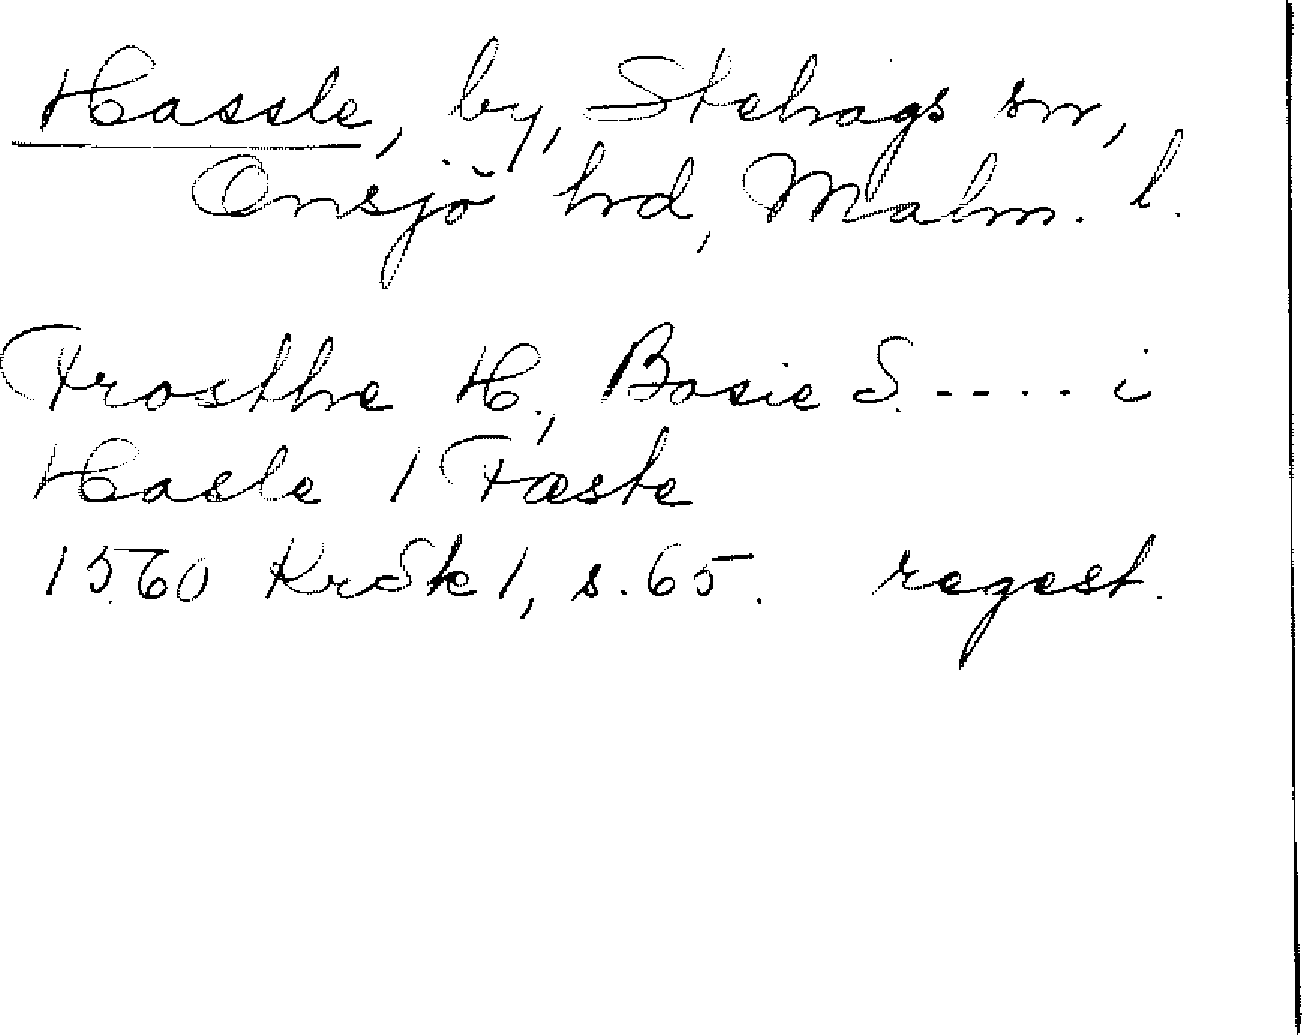 Hassle, by, Stehags sn,
Onsjö hrd, Malm. l.
Frosthe H., Bosie S. ---- i
Hasle 1 Fæste
1560 KrSk 1, s. 65. regest.